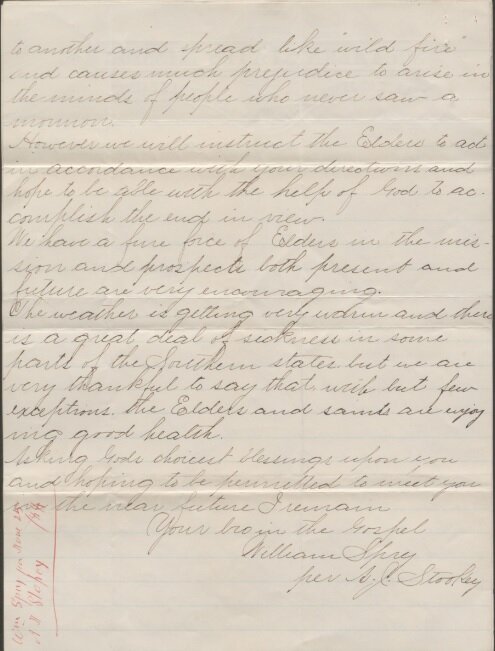 to another and spread like "wild fire"
and causes much prejudice to arise in
the minds of people who never saw a
mormon.
However we will instruct the Elders to act
in accordance with your directions and
hope to be able with the help of God to ac-
complish the end in view.
We have a fine force of Elders in the mis-
sion and prospects both present and
future are very encouraging.
The weather is getting very warm and there
is a great deal of sickness in some
parts of the Southern states but we are
very thankful to say that with but few
exceptions the Elders and saints are enjoy
ing good health.
Asking Gods choicest blessings upon you
and hoping to be permitted to meet you
in the near future I remain
Your bro in the Gospel
William Spry
per A. C. Stookey
Wm Spry